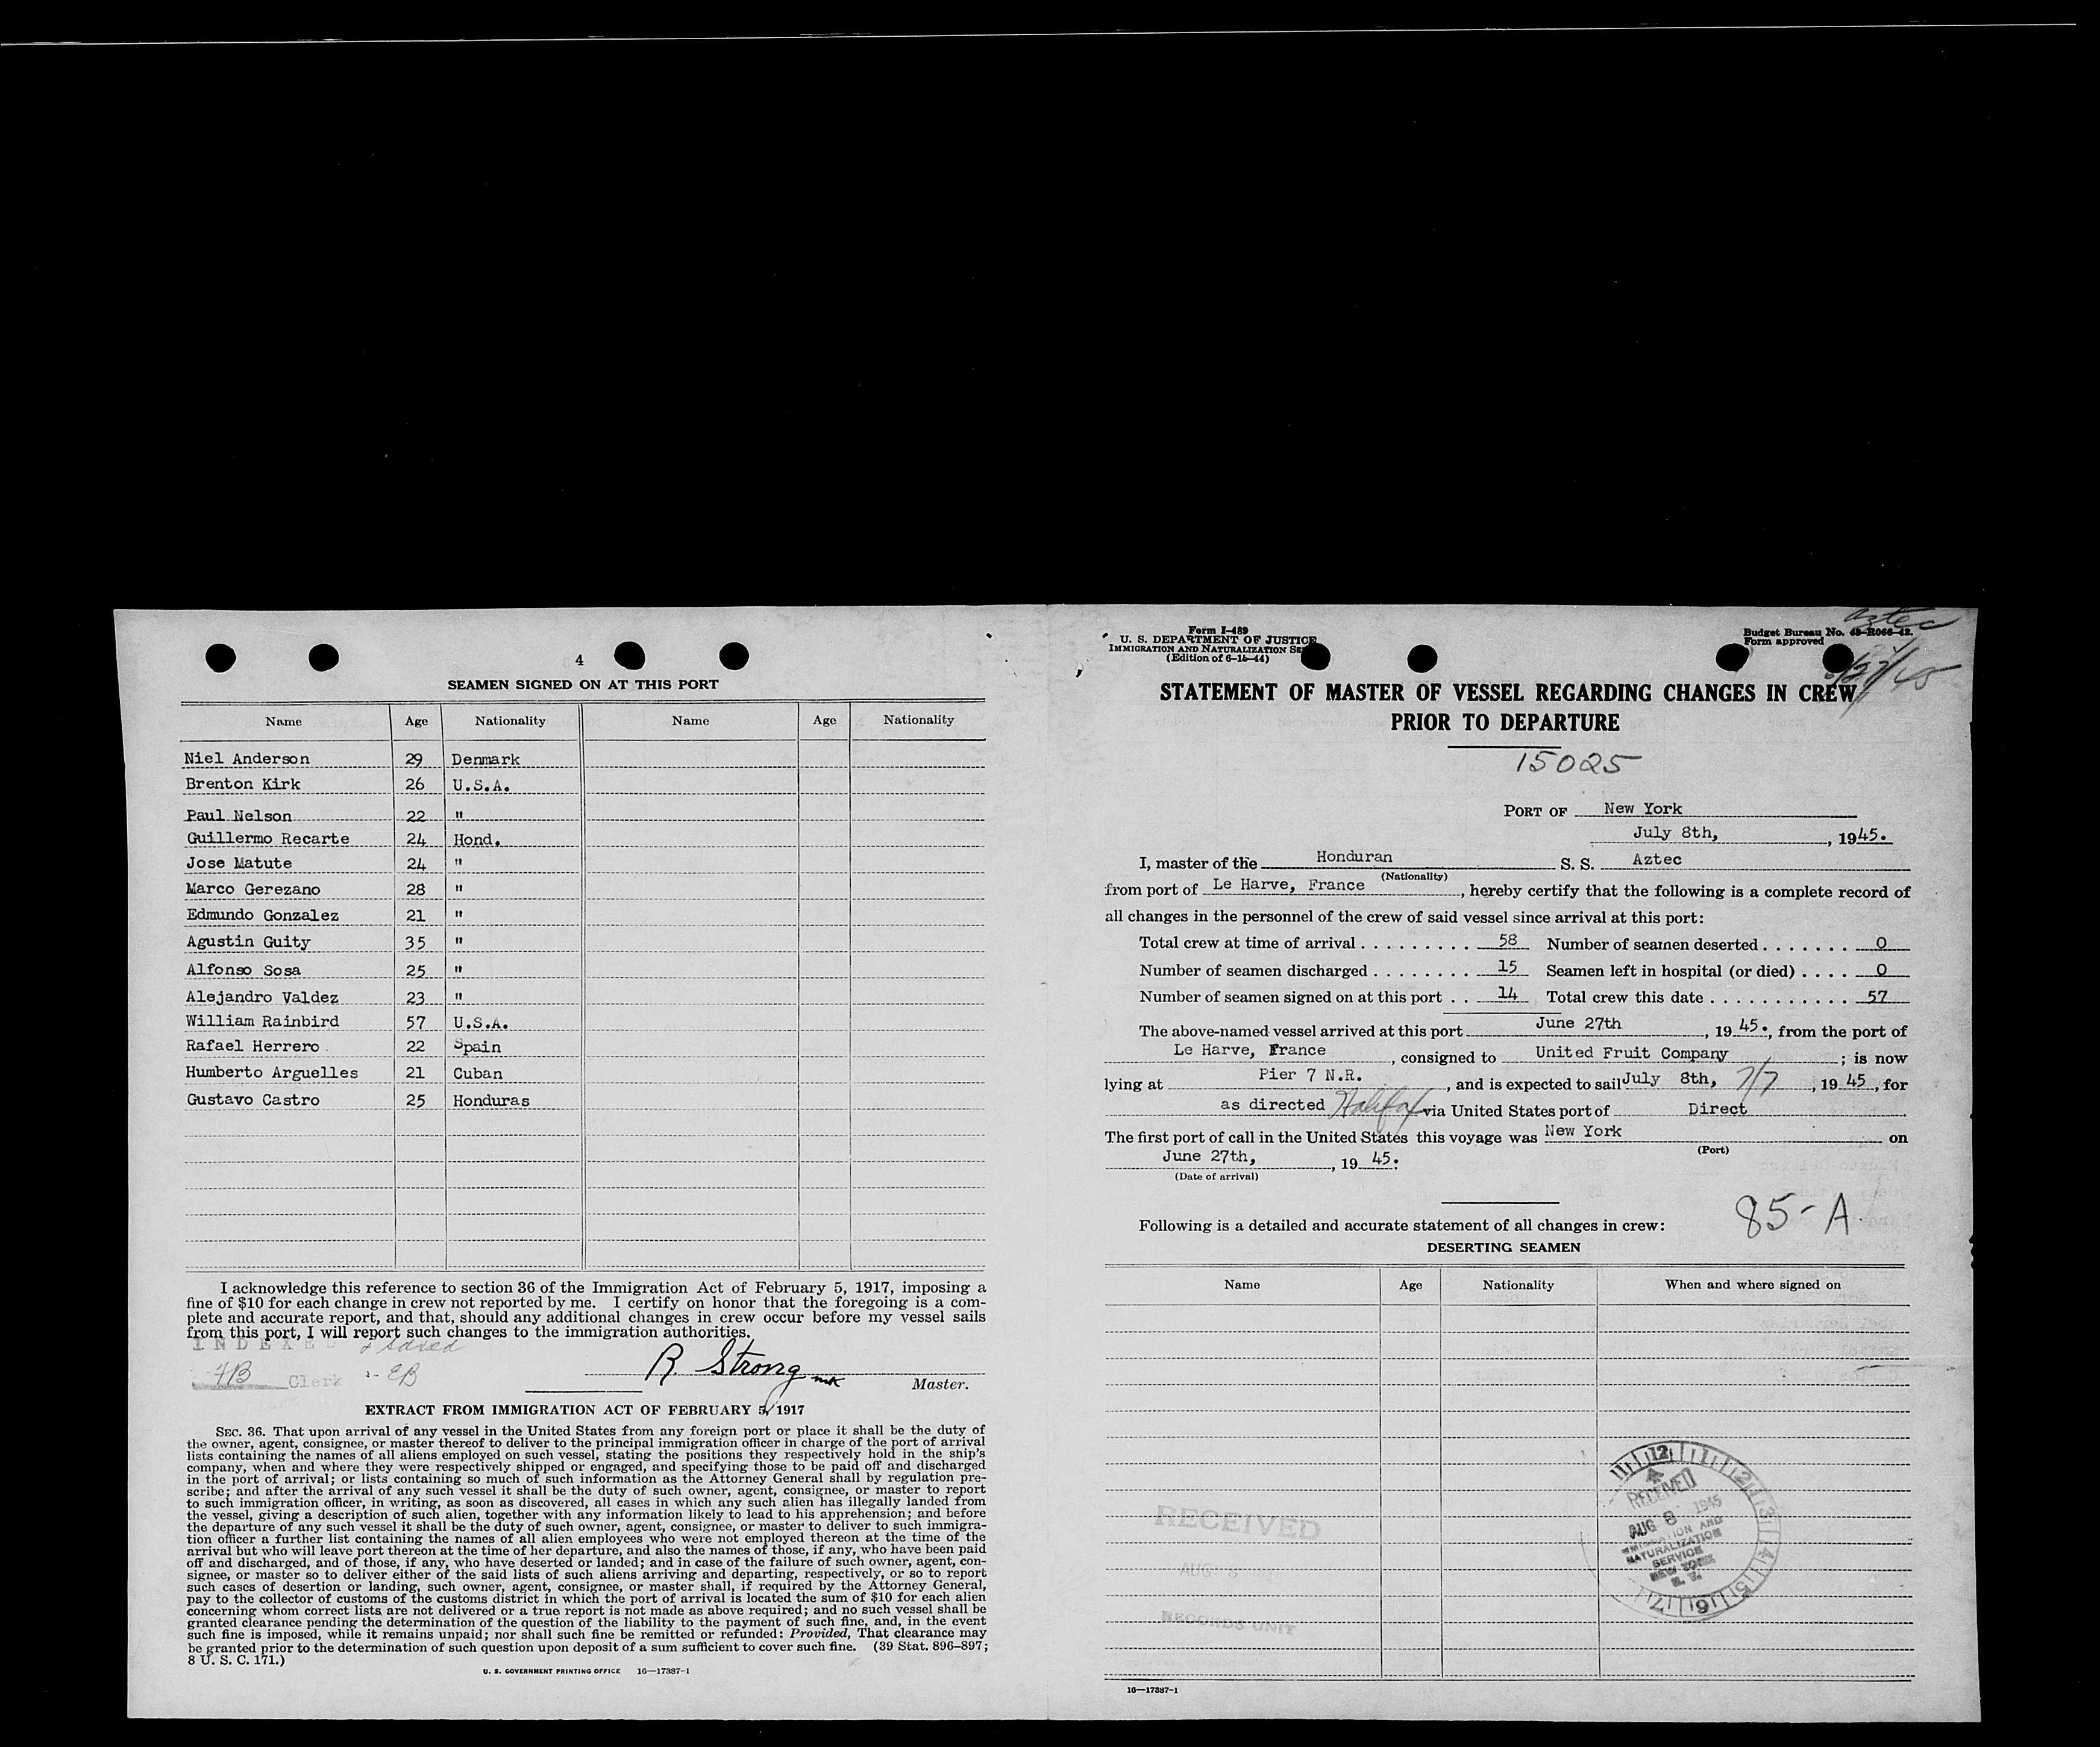 4
SEAMEN SIGNED ON AT THIS PORT
Name Age Nationality Name Age Nationality
Niel Anderson 29 Denmark
Brenton Kirk 26 U.S.A.
Paul Nelson 22 "
Guillermo Recarte 24 Hond.
Jose Matute 24 "
Marco Gerezano 28 "
Edmundo Gonzalez 21 "
Agustin Guity 35 "
Alfonso Sosa 25 "
Alejandro Valdez 23 "
William Rainbird 57 U.S.A.
Rafael Herrero 22 Spain
Humberto Arguelles 21 Cuban
Gustavo Castro 25 Honduras
I acknowledge this reference to section 36 of the Immigration Act of February 5, 1917, imposing a
fine of $10 for each change in crew not reported by me. I certify on honor that the foregoing is a com-
plete and accurate report, and that, should any additional changes in crew occur before my vessel sails
from this port, I will report such changes to the immigration authorities.
INDEXED
Clerk EB
R. Strong
Master.
EXTRACT FROM IMMIGRATION ACT OF FEBRUARY 5, 1917
SEC. 36. That upon arrival of any vessel in the United States from any foreign port or place it shall be the duty of
the owner, agent, consignee, or master thereof to deliver to the principal immigration officer in charge of the port of arrival
lists containing the names of all aliens employed on such vessel, stating the positions they respectively hold in the ship's
company, when and where they were respectively shipped or engaged, and specifying those to be paid off and discharged
in the port of arrival; or lists containing so much of such information as the Attorney General shall by regulation pre-
scribe; and after the arrival of any such vessel it shall be the duty of such owner, agent, consignee, or master to report
to such immigration officer, in writing, as soon as discovered, all cases in which any such alien has illegally landed from
the vessel, giving a description of such alien, together with any information likely to lead to his apprehension; and before
the departure of any such vessel it shall be the duty of such owner, agent, consignee, or master to deliver to such immigra-
tion officer a further list containing the names of all alien employees who were not employed thereon at the time of the
arrival but who will leave port thereon at the time of her departure, and also the names of those, if any, who have been paid
off and discharged, and of those, if any, who have deserted or landed; and in case of the failure of such owner, agent, con-
signee, or master so to deliver either of the said lists of such aliens arriving and departing, respectively, or so to report
such cases of desertion or landing, such owner, agent, consignee, or master shall, if required by the Attorney General,
pay to the collector of customs of the customs district in which the port of arrival is located the sum of $10 for each alien
concerning whom correct lists are not delivered or a true report is not made as above required; and no such vessel shall be
granted clearance pending the determination of the question of the liability to the payment of such fine, and, in the event
such fine is imposed, while it remains unpaid; nor shall such fine be remitted or refunded: Provided, That clearance may
be granted prior to the determination of such question upon deposit of a sum sufficient to cover such fine. (39 Stat. 896–897;
8 U. S. C. 171.)
U. S. GOVERNMENT PRINTING OFFICE 16—17387-1
Form I-489
U. S. DEPARTMENT OF JUSTICE
IMMIGRATION AND NATURALIZATION
(Edition of 6-15-44)
Aztec
Budget Bureau No. 43-R066-42.
Form approved
STATEMENT OF MASTER OF VESSEL REGARDING CHANGES IN CREW
PRIOR TO DEPARTURE
15025
PORT OF New York
July 8th, , 1945.
I, master of the Honduran S. S. Aztec
(Nationality)
from port of Le Harve, France , hereby certify that the following is a complete record of
all changes in the personnel of the crew of said vessel since arrival at this port:
Total crew at time of arrival . . . . . . . . . 58 Number of seamen deserted . . . . . . . 0
Number of seamen discharged . . . . . . . . 15 Seamen left in hospital (or died) . . . . 0
Number of seamen signed on at this port . . 14 Total crew this date . . . . . . . . . . . 57
The above-named vessel arrived at this port June 27th , 19 45., from the port of
Le Harve, France , consigned to United Fruit Company ; is now
lying at Pier 7 N.R. , and is expected to sail July 8th, 7/7 , 19 45 , for
as directed Halifax via United States port of Direct
The first port of call in the United States this voyage was New York on
(Port)
June 27th, , 19 45.
(Date of arrival)
85-A
Following is a detailed and accurate statement of all changes in crew:
DESERTING SEAMEN
Name Age Nationality When and where signed on
RECEIVED
AUG 8
RECORDS UNIT
RECEIVED
AUG 8 1945
IMMIGRATION AND
NATURALIZATION
SERVICE
NEW YORK
N. Y.
16—17387-1